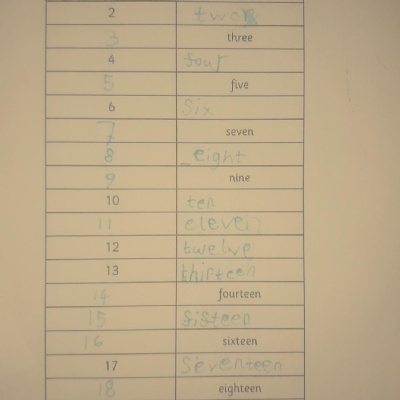 2 two
3 three
4 four
5 five
6 Six
7 seven
8 eight
9 nine
10 ten
11 eleven
12 twelve
13 thirteen
14 fourteen
15 fisteen
16 sixteen
17 Seventeen
18 eighteen